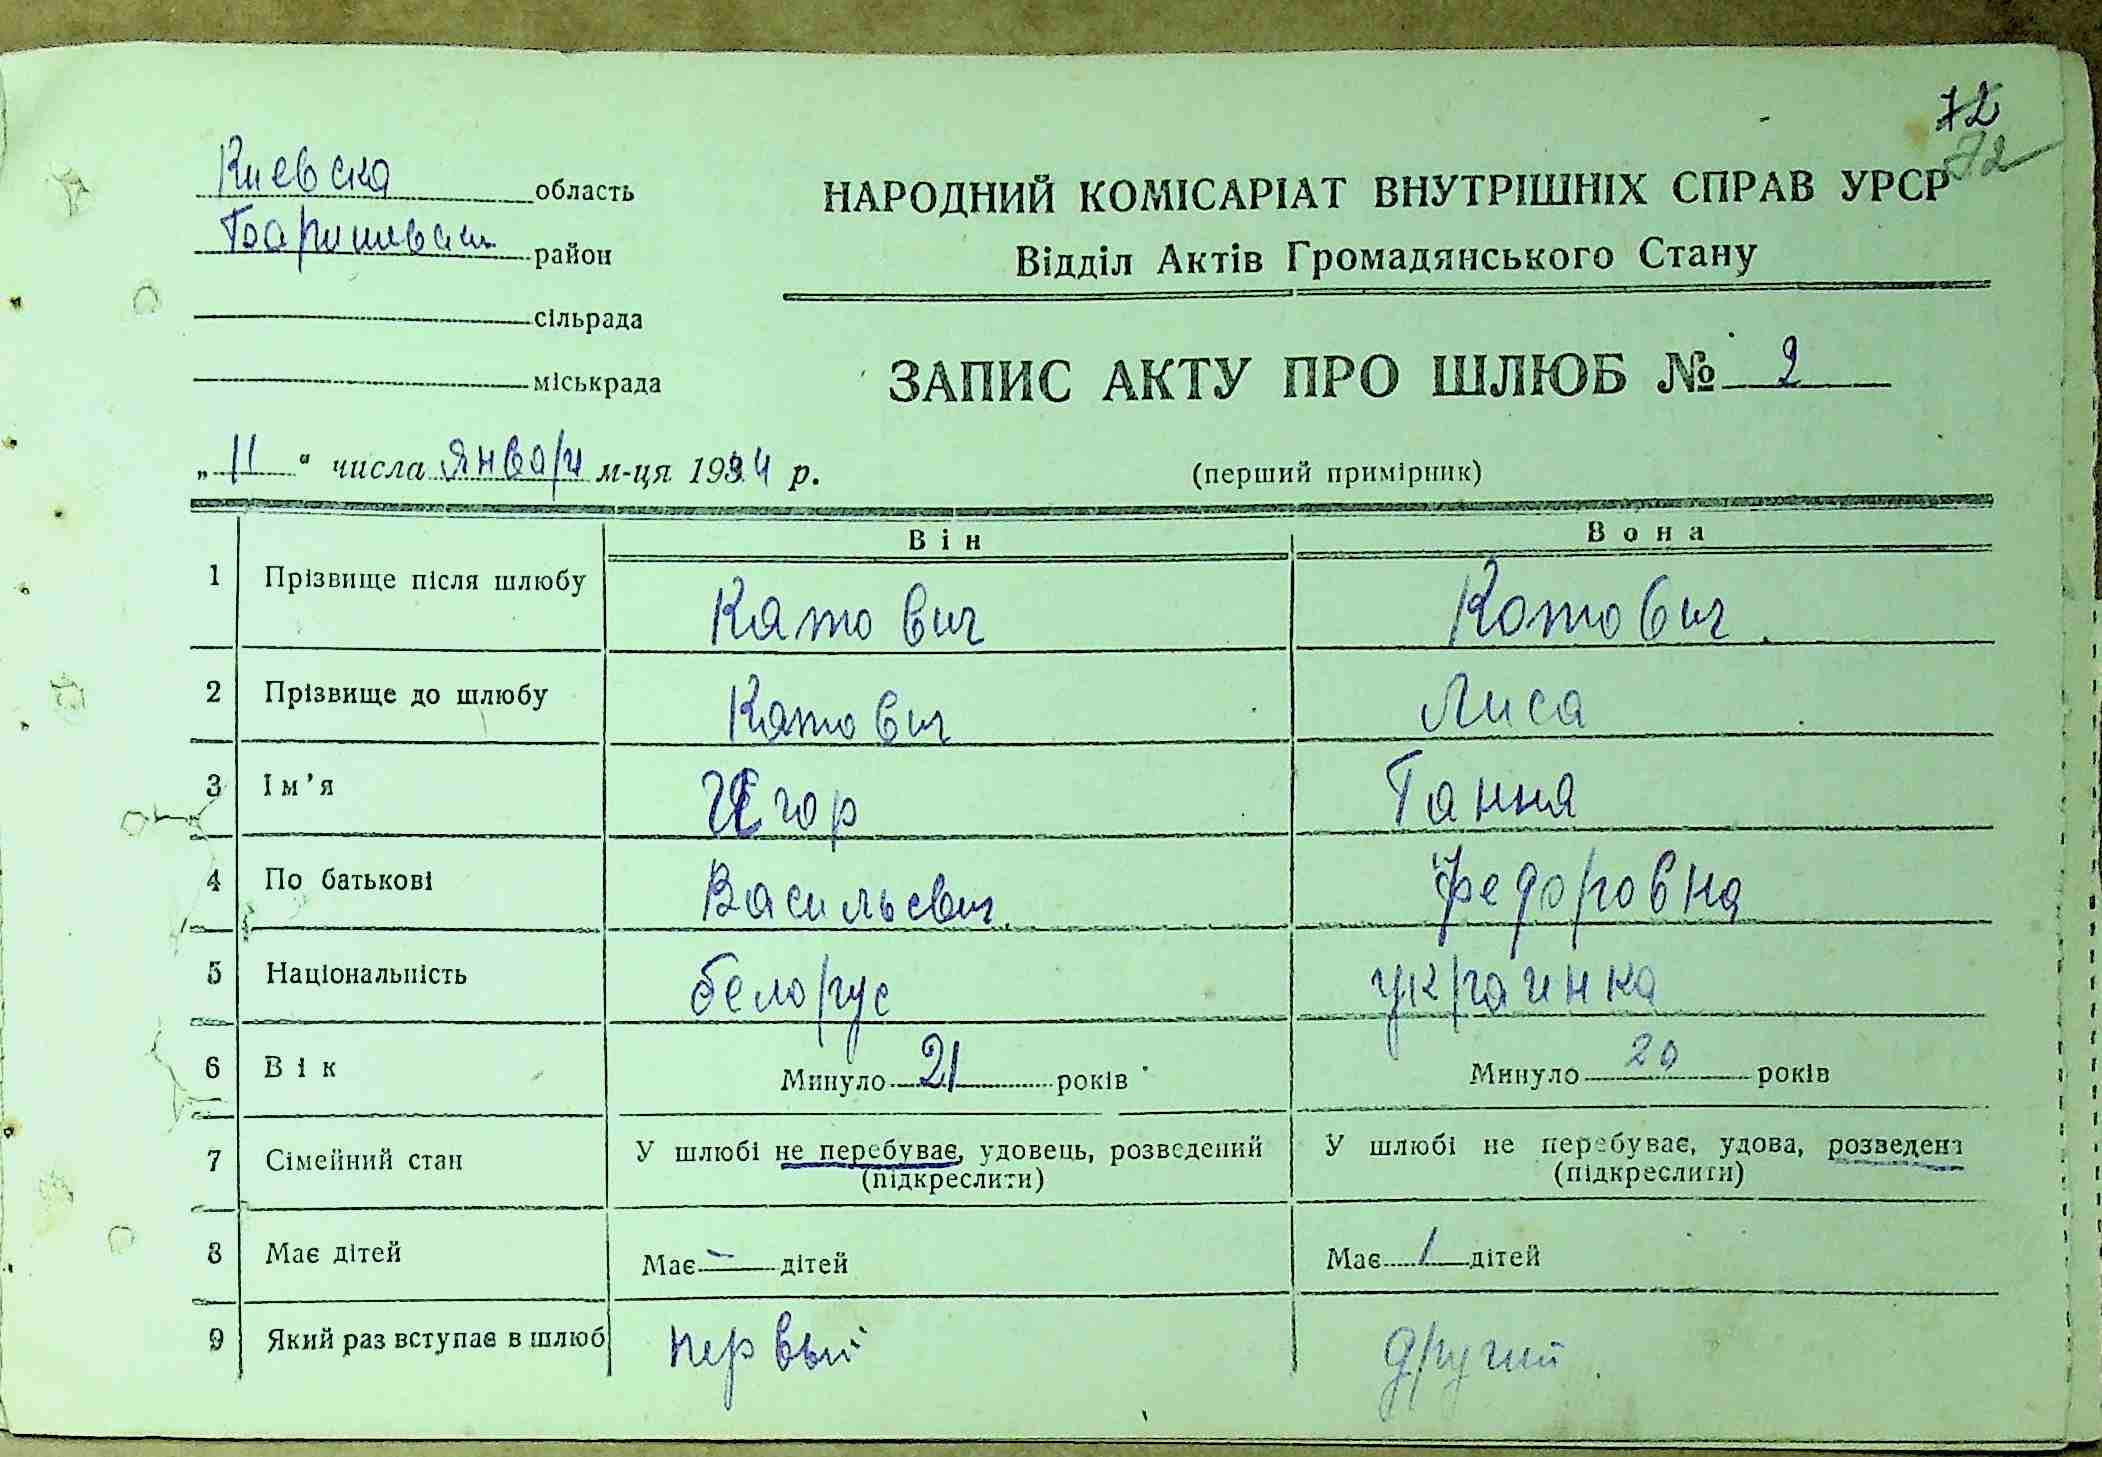 72
72
Киевска область
Баришевски район
сільрада
міськрада
НАРОДНИЙ КОМІСАРІАТ ВНУТРІШНІХ СПРАВ УРСР
Відділ Актів Громадянського Стану
ЗАПИС АКТУ ПРО ШЛЮБ № 2
„ 11 “ числа Январи м-ця 1944 р.
(перший примірник)
Він Вона
1 Прізвище після шлюбу Катович Котович
2 Прізвище до шлюбу Катович Лиса
3 Ім’я Игор Гання
4 По батькові Васильевич Федоровна
5 Національність белорус украинка
6 Вік Минуло 21 років Минуло 20 років
7 Сімейний стан У шлюбі не перебуває, удовець, розведений У шлюбі не перебуває, удова, розведена
(підкреслити) (підкреслити)
8 Має дітей Має - дітей Має 1 дітей
9 Який раз вступає в шлюб первый другий